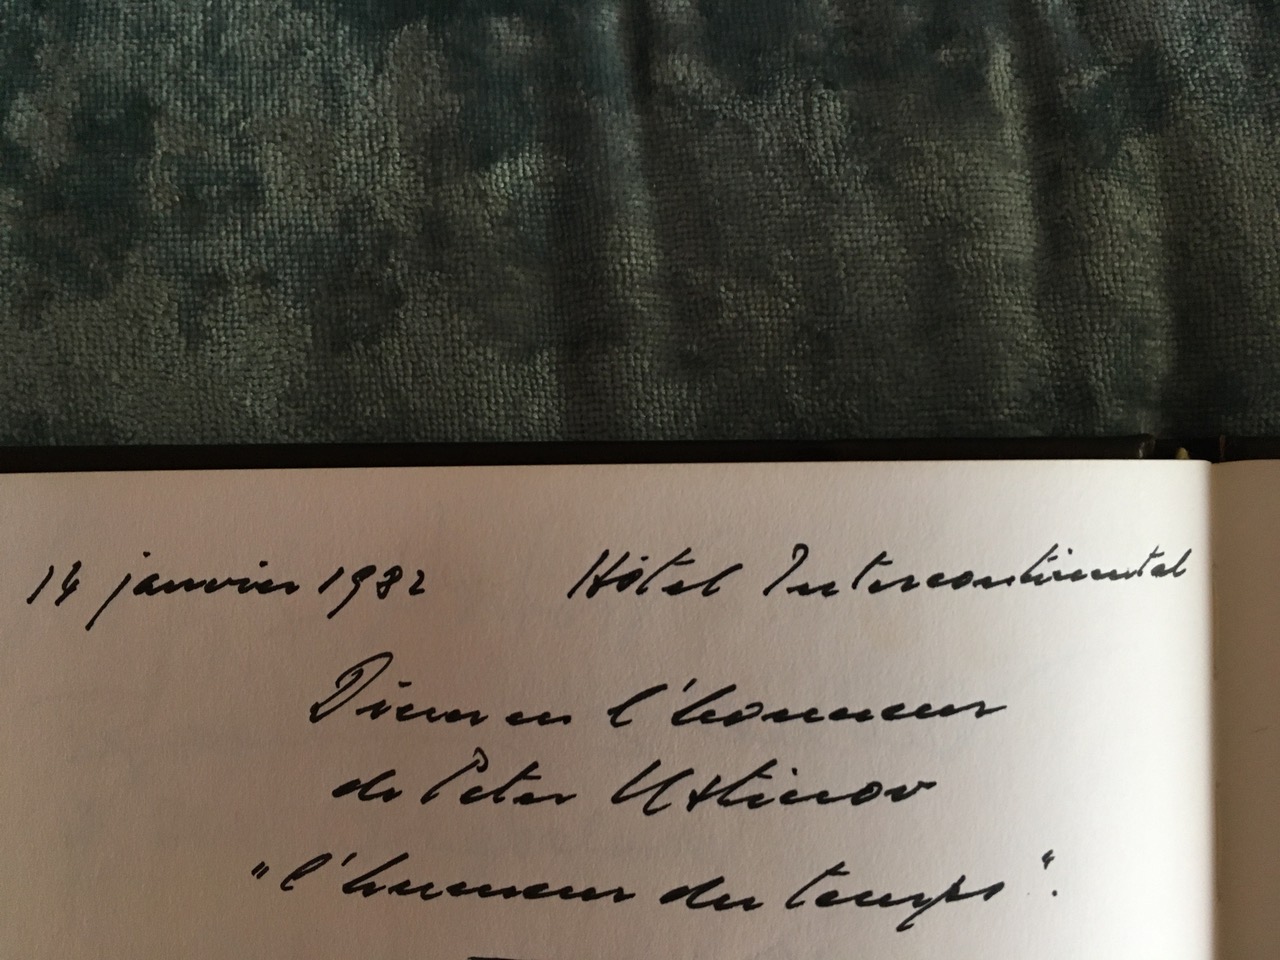 14 janvier 1982 Hôtel Intercontinental
Diner en l'honneur
de Peter Ustinov
"l'humeur du temps".